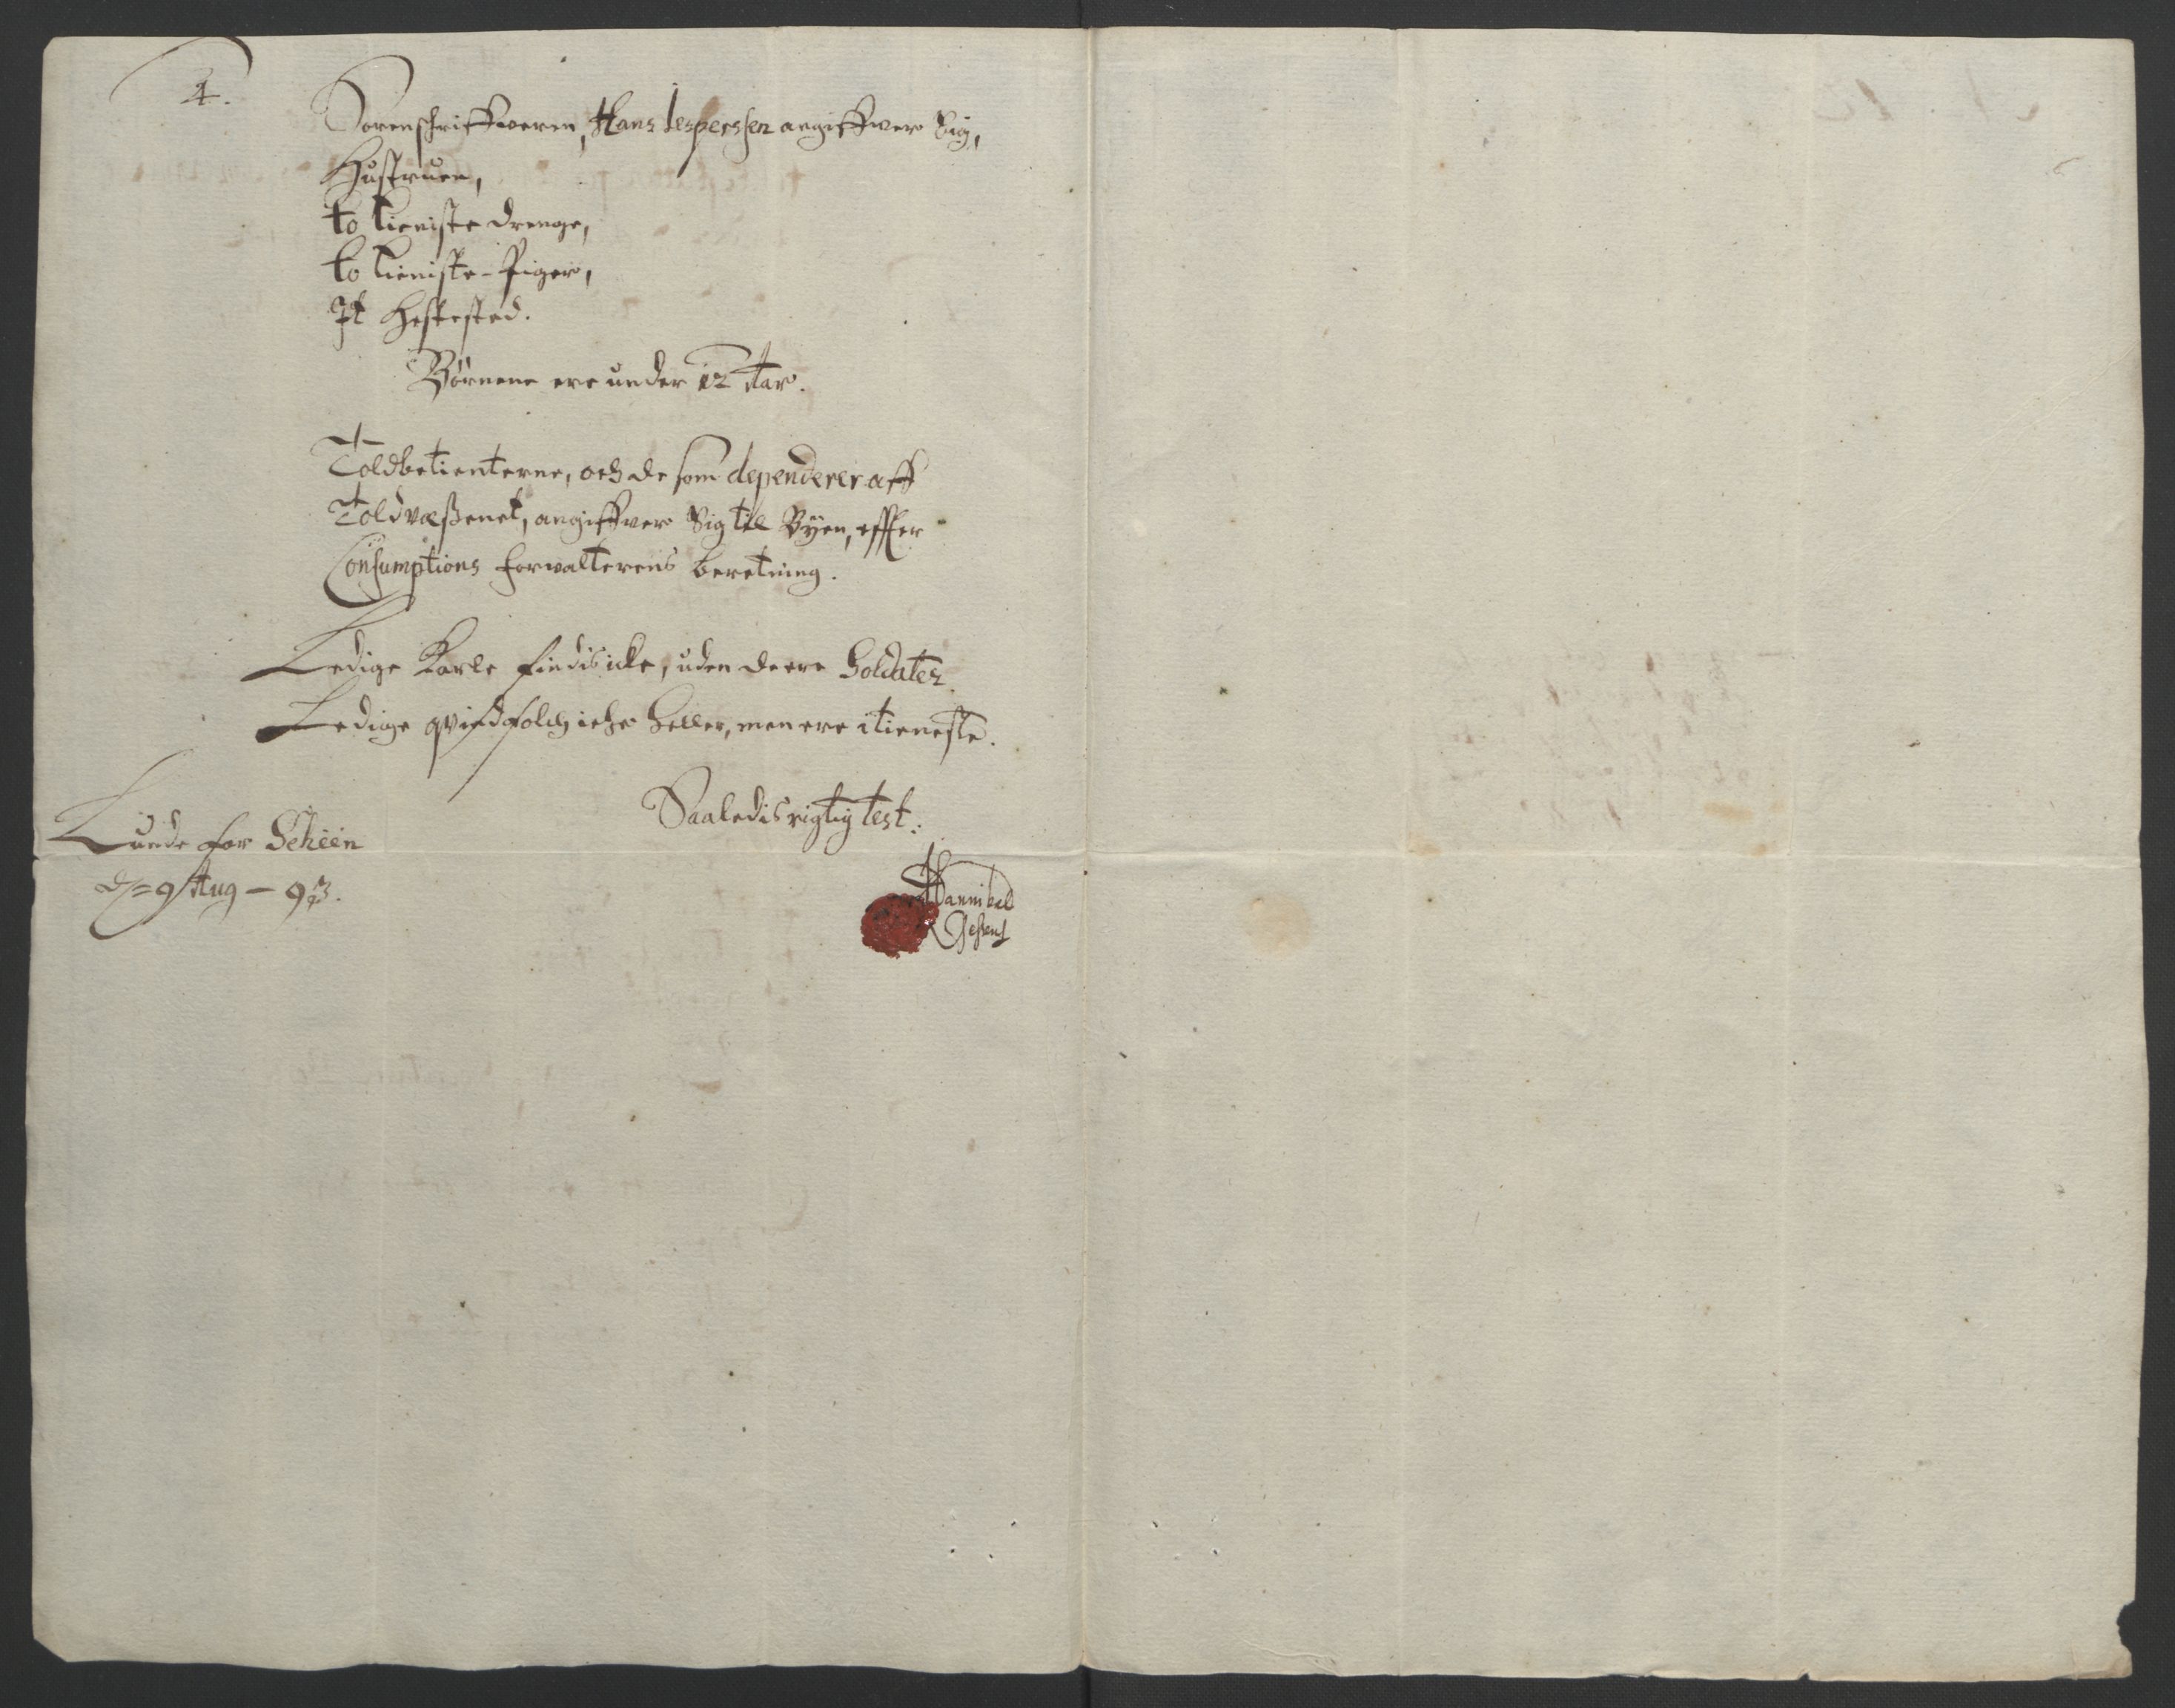 4.
Sorenschriffweren, Hans Jesperssen angiffwer Sig,
Hustruen,
to tieniste drenge,
to tieniste-Piger,
Jt Hestested.
Børnene ere under 12 Aar.
Toldbetienterne, och de som dependerer aff
Toldvæßenet, angiffver Sig til Byen, effter
Consumptions forwalterens beretning.
Ledige Karle findis icke, uden de ere Soldater
Ledige qvindfolch iche heller, men ere i tieneste.
Saaledis rigtig test:
Lunde for Scheen
d. 9 Aug - 93.
Hannibal